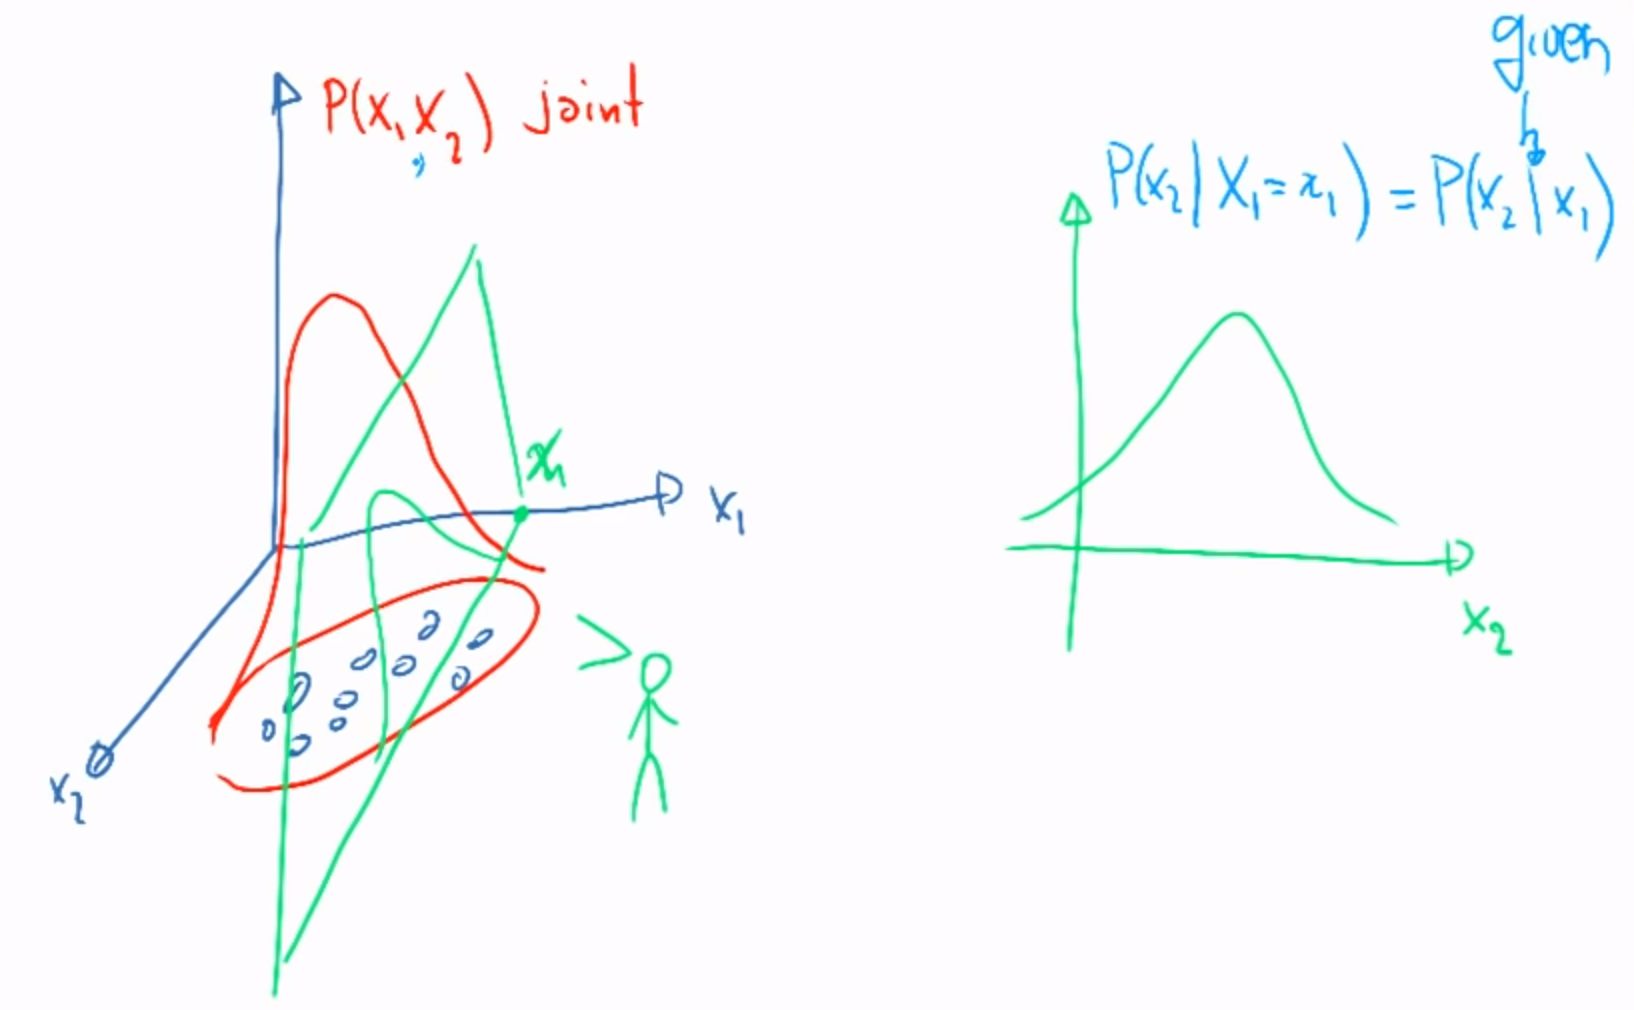 P(x₁, x₂) joint
x₁
x₁
x₂
given
P(x₂ | X₁ = x₁) = P(x₂ | x₁)
x₂